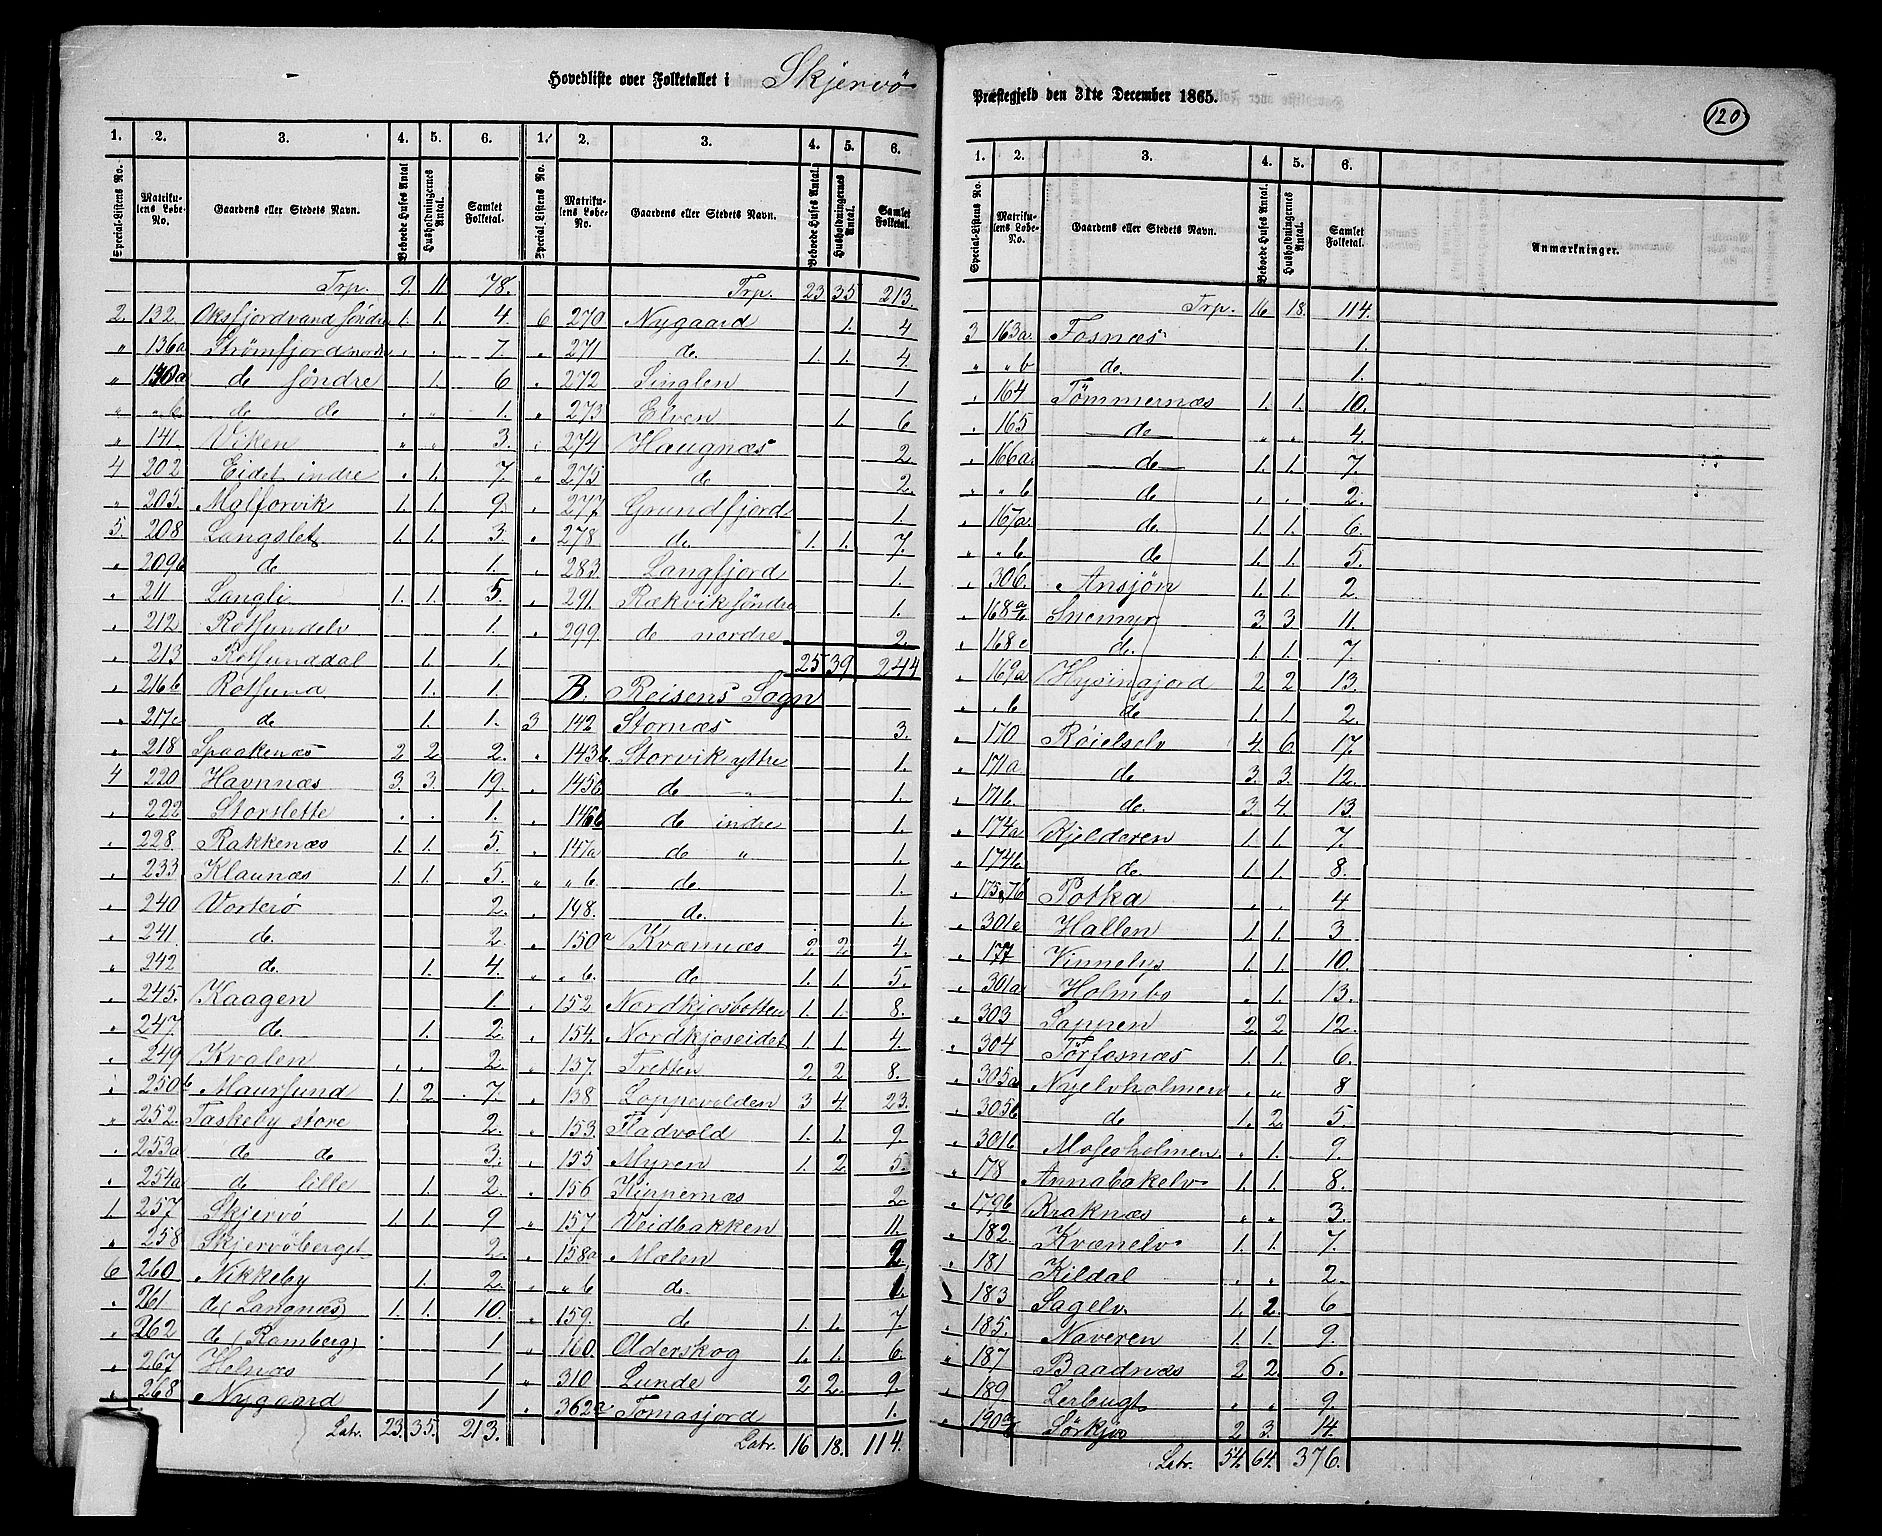 Hovedliste over Folketallet i Skjervö
1. 2. 3. 4. 5. 6. 1. 2. 3. 4. 5. 6.
Special-Listens No. Matrikulens Løbe-No. Gaardens eller Stedets Navn. Beboede Huses Antal Husholdningernes Antal. Samlet Folketal. Special-Listens No. Matrikulens Løbe-No. Gaardens eller Stedets Navn. Beboede Huses Antal. Husholdningernes Antal. Samlet Folketal.
Trp. 9. 11. 78.
2. 132 Oksfjordvand söndre 1. 1. 4.
" 136a Strömfjord nordre . . 7.
" de söndre 1. 6
" " b de de . " 1.
" 141. Viken " " 3.
4 202 Eidet indre . 1. 7.
" 205. Malforvik 1. 1. 9.
5. 208 Langslet 1. 1. 3.
" 209b de 1.
" 211 Langli 1. 1. 5.
" 212 Rotsundelv 1.
" 213 Rotsunddal 1. 1.
" 216b Rotsund 1. 1.
" 217c de 1. 1.
" 218 Spaakenæs 2 2 2.
4 220 Havnnæs 3. 3. 19.
" 222 Storslette . . 1.
" 228. Rakkenæs 1. 1. 5.
" 233 Klaunæs 1. 1. 5.
" 240 Vorterö 2.
" 241. de 2.
" 242 de 1. 4.
" 245. Kaagen 1.
" 247 de 1. 2.
" 249 Kvalen . . 2.
" 250b Maursund 1. 2. 7.
" 252. Taskeby store 2.
" 253a de de 3.
" 254a de lille 1. 2.
1. 257 Skjervö 1. 1. 9
" 258 Skjervöberget 2.
6 260 Nikkeby 1. 2.
" 261 de (Langnæs) 1. 1. 10.
" 262 de (Ramberg) 1
" 267 Helnæs 1
" 268 Nygaard 1
Latr. 23. 35. 213.
Trp. 23 35 213.
6 270 Nygaard 1. 4
" 271 de 1. 1. 4.
" 272 Singlen 1
" 273 Elven 1. 6
" 274 Haugnæs 2.
" 275 de 2.
" 277 Grundfjord 1.
" 278 de 1. 1. 7.
" 283. Langfjord 1.
" 291. Rækvik söndre 1.
" 299 de nordre 2.
25 39 244
B. Reisens Sogn
3 142 Stornæs 3.
" 143b. Storvik yttre 1.
" 145b de " 1.
" 146b de indre 1.
" 147a de " 1.
" " b. de 1.
" 148. de. 1.
" 150a Kvænnæs 2 2. 4.
" " b. de 1. 1. 5.
" 152. Nordkjosbotten 1. 1. 8.
" 154. Nordkjoseidet 1. 1. 4.
" 137. Tretten 2 2 8.
" 138 Loppevolden 3 4. 23.
" 153. Fladvold 1. 1. 9.
" 155 Myren 1. 2 5.
" 156 Kippernæs 2
" 157 Veidbakken 11.
" 158a Mælen 2.
" " b de 1.
" 159. de 1. 1. 7.
" 160. Olderskog 1. 1. 6.
" 310 Lunde 2 2. 9.
" 362a Tomasjord 1.
Latr. 16 18. 114.
Præstegjeld den 31te December 1865.
120
1. 2. 3. 4. 5. 6.
Special-Listens No. Matrikulens Løbe-No. Gaardens eller Stedets Navn. Beboede Huses Antal. Husholdningernes Antal. Samlet Folketal. Anmærkninger.
Trp. 16 18. 114.
3 163a. Fosnæs 1.
" " b de. 1.
" 164 Tömmernæs 1. 1. 10.
" 165 de " " 4.
" 166a. de 1. 1. 7.
" " b de . . 2.
" 167a. de 1. 1. 6.
" " b de 1. 1. 5.
" 306. Ansjön 1. 1. 2.
" 168a/b Snemyr 3. 3 11.
" 168c de. 1. 1. 7
" 169a 2 2 13.
" " b de 1. 1. 2.
" 170 Röielselv 4. 6. 17.
" 171a de 3. 3. 12.
" 171b. de. 3. 4. 13.
" 174a Kjelderen 1. 1. 7.
" 174b de 1. 1. 8.
" Potka . . 4
" 301c Hallen 1. 1. 3
" 177 Vinnelys 1. 1. 10.
" 301a Holmbo . 1. 13.
" 303 Sappen 2 2 12.
" 304 Törfosnæs 1. 1. 6.
" 305a Nyelvholmen . " 8
" 305b de 1. 2. 5.
" 301b Moseoholmen " 1. 9.
" 178 Annabakelv 1. 1. 8.
" 179b Kraknæs " " 3.
" 182. Kvænelv 1. 1. 7.
" 181 Kildal " " 2.
" 183 Sagelv 1. 2. 6
" 185. Naveren 1. 1. 9.
" 187 Baadnæs 2 2. 6.
" 189 Lerbugt " " 9.
" 190 Sörkjos 2 3. 14.
Latr. 54. 64. 376.